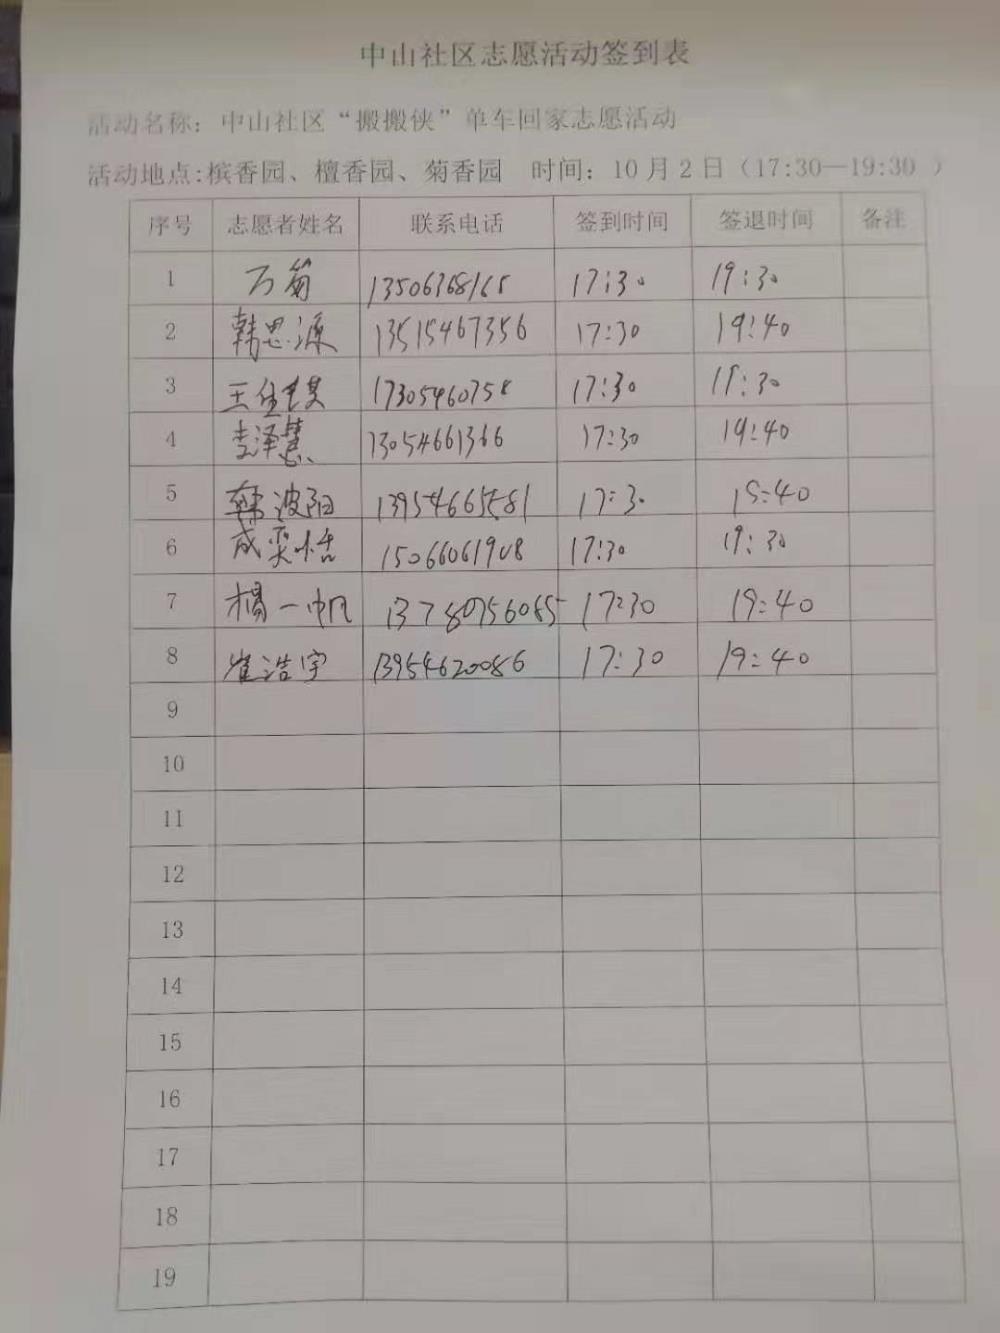 中山社区志愿活动签到表
活动名称：中山社区“搬搬侠”单车回家志愿活动
活动地点:槟香园、檀香园、菊香园 时间：10月2日（17:30—19:30 ）
序号 志愿者姓名 联系电话 签到时间 签退时间 备注
1 万菊 13506368165 17:30 19:30
2 韩思源 13515467356 17:30 19:40
3 王佳 17305460758 17:30 19:30
4 李泽慧 13054661366 17:30 19:40
5 韩波阳 17:30 19:40
6 成奕恬 15066061908 17:30 19:30
7 杨一帆 13780756085 17:30 19:40
8 崔浩宇 13954620086 17:30 19:40
9
10
11
12
13
14
15
16
17
18
19